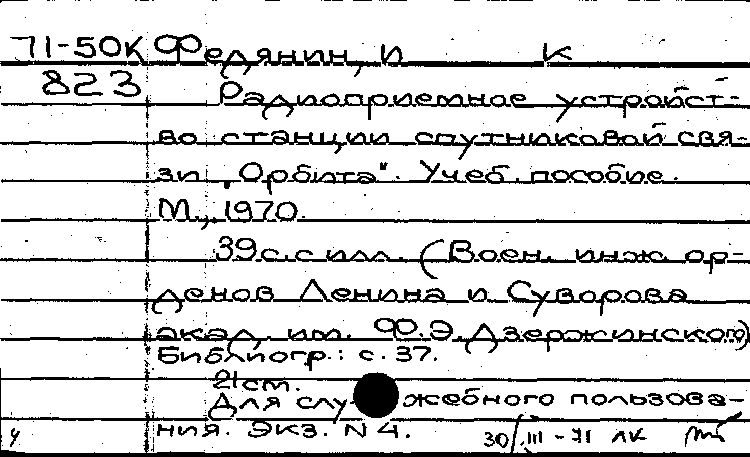 71-50К Федянин, И К
823 Радиоприемное устройст-
во станции спутниковой свя-
зи „Орбита". Учеб. пособие.
М., 1970.
39 с. с илл. (Воен. инж. ор-
денов Ленина и Суворова
акад. им. Ф.Э. Дзержинского)
Библиогр.: с. 37.
21 см.
Для слу жебного пользова-
ния. Экз. N 4.
30/III-71 ЛК